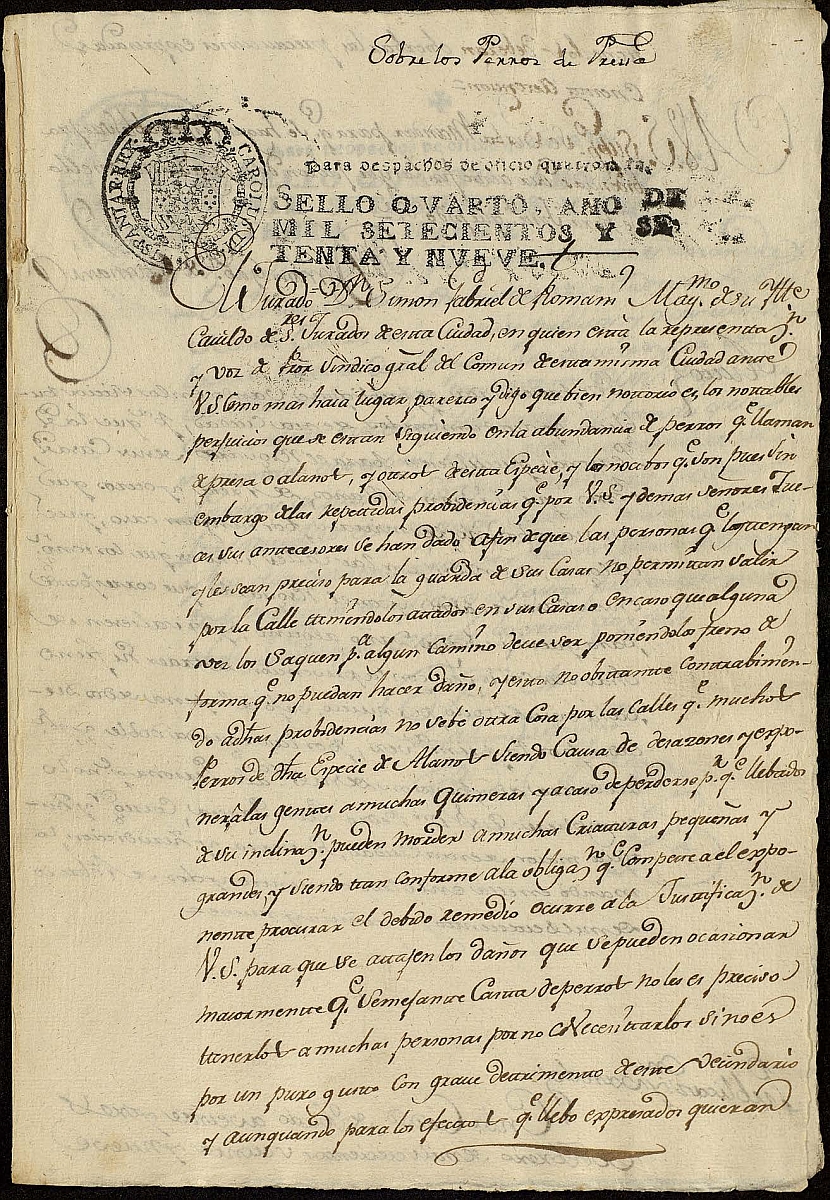 Sobre los Perros de Presa
HISPANIAR. REX. CAROLUS
Para despachos de oficio quatro mrs.
SELLO QVARTO, AÑO DE
MIL SETECIENTOS Y SE-
TENTA Y NVEVE.
El Jurado Dn. Simon Gabriel de Roman Maymo. de su Ille
Cavildo de Sres. Jurados de esta Ciudad, en quien está la representan.
y voz de Pror. Sindico gral del Comun de esta misma Ciudad ante
V.S. como mas haia lugar parezco y digo que bien nottorio es, los nottables
perjuicios que se estan siguiendo en la abundancia de perros qe. llaman
de presa o alanos, y otros de esta Especie, y lo nocibos qe. son pues sin
embargo de las repettidas probidencias qe. por V.S. y demas señores Jue-
ces sus antecesores se han dado afin de que las personas qe. los tengan
y les sean preciso para la guarda de sus Casas no permittan salir
por la Calle tteniendolos attados en sus Casas o en caso que alguna
vez los saquen pa. algun camino deve ser poniendolos freno de
forma qe. no puedan hacer daño, y esto no obstante contrabinien-
do adhas probidencias no se bé otra Cosa por las calles qe. muchos
Perros de dha Especie de Alanos siendo Causa de desazones y expo-
ner a las gentes a muchas Quimeras y acaso de perderse pr. qe. llebados
de su inclinan. pueden morder a muchas Criatturas pequeñas y
grandes, y siendo tran conforme a la obligan. qe. Compete a el expo-
nente procurar el debido remedio ocurre a la Justtifican. de
V.S. para que se attajen los daños que se pueden ocasionar
maiormente qe. semejante Casta de perros no les es preciso
ttenerlos a muchas personas por no Necesittarlos sino es
por un puro gusto con grave detrimento de este Vecindario
y aunquando para los efectos qe. llebo expresados quieran